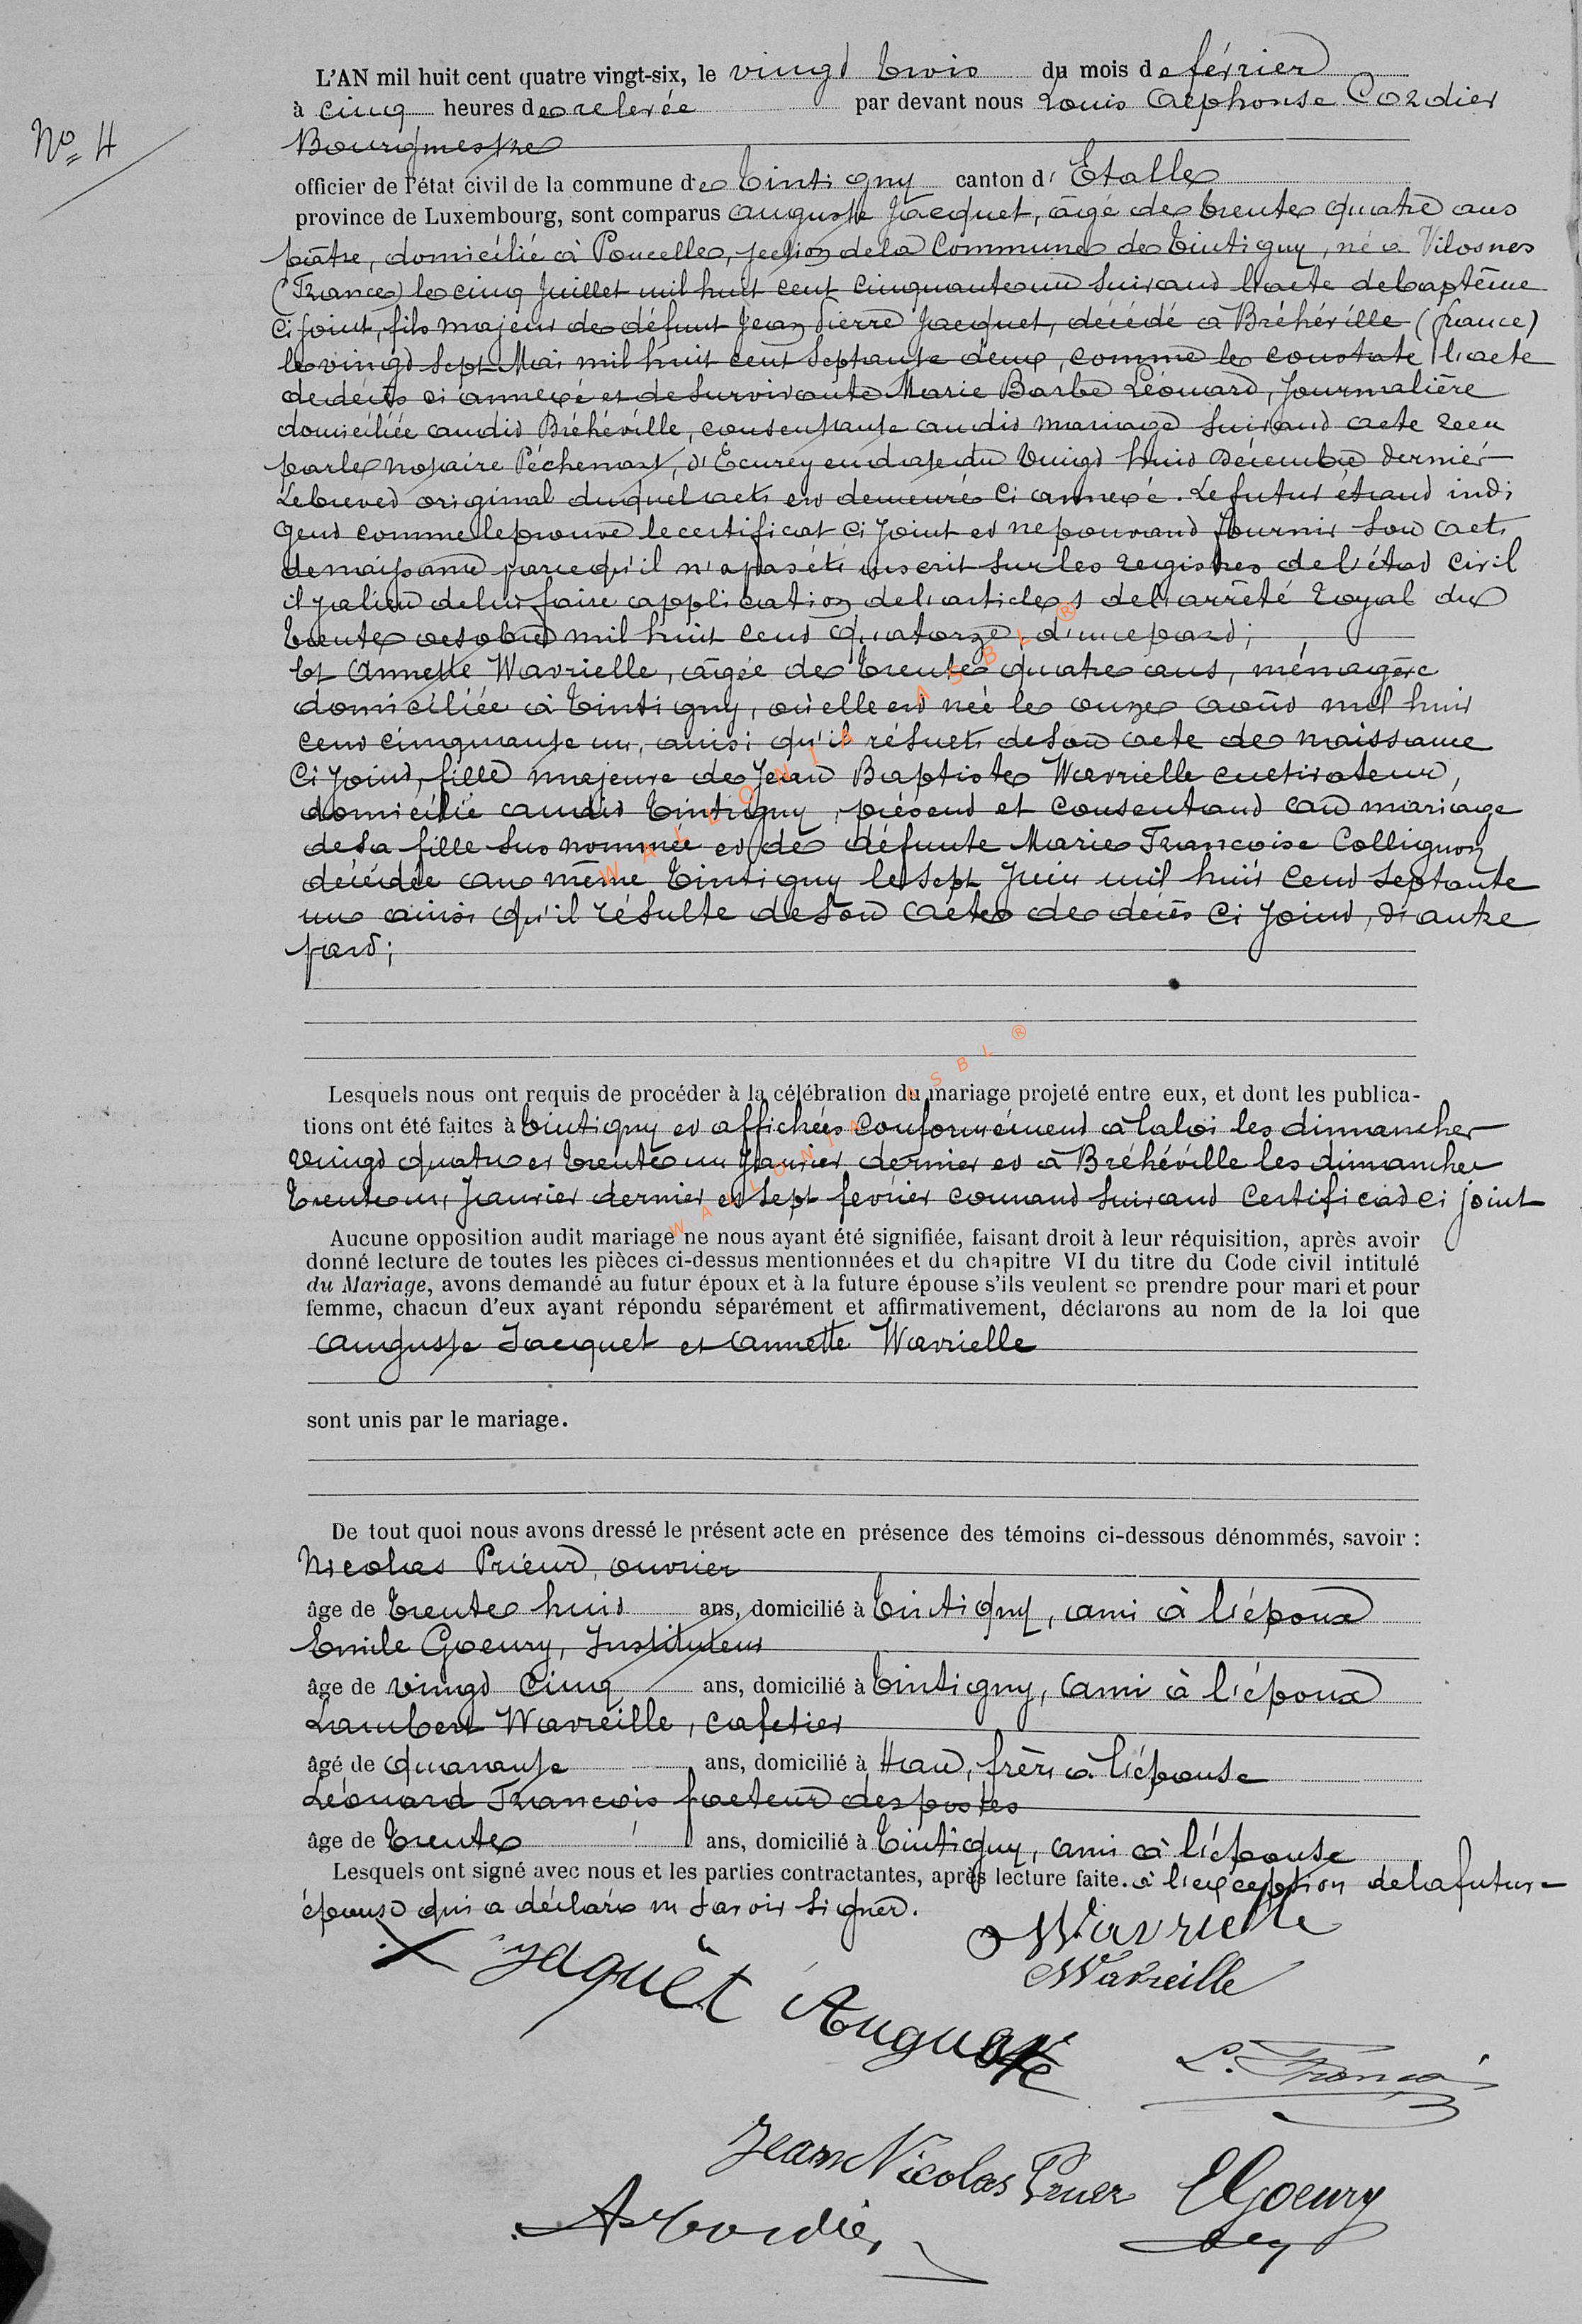 L'AN mil huit cent quatre vingt-six, le vingt trois du mois de février
à cinq heures de relevée par devant nous Louis Alphonse Cordier
No 4
Bourgmestre
officier de l'état civil de la commune de Tintigny canton d'Etalle
province de Luxembourg, sont comparus Auguste Jacquet, âgé de trente quatre ans
pâtre, domicilié à Poncelle, section de la Commune de Tintigny, né à Vilosnes
(France) le cinq Juillet mil huit cent cinquante un suivant l'acte de baptême
ci joint, fils majeur de défunt Jean Pierre Jacquet, décédé à Bréhéville (france)
le vingt sept Mai mil huit cent septante deux, comme le constate l'acte
de décès ci annexé et de survivante Marie Barbe Léonard, Journalière
domiciliée audit Bréhéville, consentante audit mariage suivant acte reçu
par le notaire Péchenart, d'Ecurey en date du vingt huit Décembre dernier
Le brevet original duquel acte est demeuré ci annexé. Le futur étant indi
gent comme le prouve le certificat ci joint et ne pouvant fournir son acte
de naissance parcequ'il n'a pas été inscrit sur les registres de l'état civil
il y a lieu de lui faire application de l'article 1 de l'arrêté royal du
trente octobre mil huit cent quatorze, d'une part;
Et Annette Wavrielle, âgée de trente quatre ans, ménagère
domiciliée à Tintigny, où elle est née le onze août mil huit
cent cinquante un, ainsi qu'il résulte de son acte de naissance
ci joint, fille majeure de Jean Baptiste Wavrielle cultivateur,
domicilié audit Tintigny, présent et consentant au mariage
de sa fille sus nommée et de défunte Marie Francoise Collignon
décédée au même Tintigny le sept Juin mil huit cent septante
un ainsi qu'il résulte de son acte de décès ci joint, d'autre
part;
WALLONIA ASBL ®
Lesquels nous ont requis de procéder à la célébration du mariage projeté entre eux, et dont les publica-
tions ont été faites à Tintigny et affichées conformément à la loi les dimanches
vingt quatre et trente un Janvier dernier et à Bréhéville les dimanches
trente un Janvier dernier et sept fevrier courant suivant certificat ci joint
WALLONIA ASBL ®
Aucune opposition audit mariage ne nous ayant été signifiée, faisant droit à leur réquisition, après avoir
donné lecture de toutes les pièces ci-dessus mentionnées et du chapitre VI du titre du Code civil intitulé
du Mariage, avons demandé au futur époux et à la future épouse s'ils veulent se prendre pour mari et pour
femme, chacun d'eux ayant répondu séparément et affirmativement, déclarons au nom de la loi que
Auguste Jacquet et Annette Wavrielle
sont unis par le mariage.
De tout quoi nous avons dressé le présent acte en présence des témoins ci-dessous dénommés, savoir :
Nicolas Prieur, ouvrier
âge de trente huit ans, domicilié à Tintigny, ami à l'époux
Emile Goeury, Instituteur
âge de vingt cinq ans, domicilié à Tintigny, ami à l'époux
Lambert Wavreille, cafetier
âgé de quarante ans, domicilié à Han, frère à l'épouse
Léonard Francois facteur des postes
âge de trente ans, domicilié à Tintigny, ami à l'épouse
Lesquels ont signé avec nous et les parties contractantes, après lecture faite. à l'exception de la future
épouse qui a déclaré ne savoir signer.
Wavrielle
Jaquèt Auguste
Wavreille
L. Francois
Jean Nicolas Pruer EGoeury
A Cordier